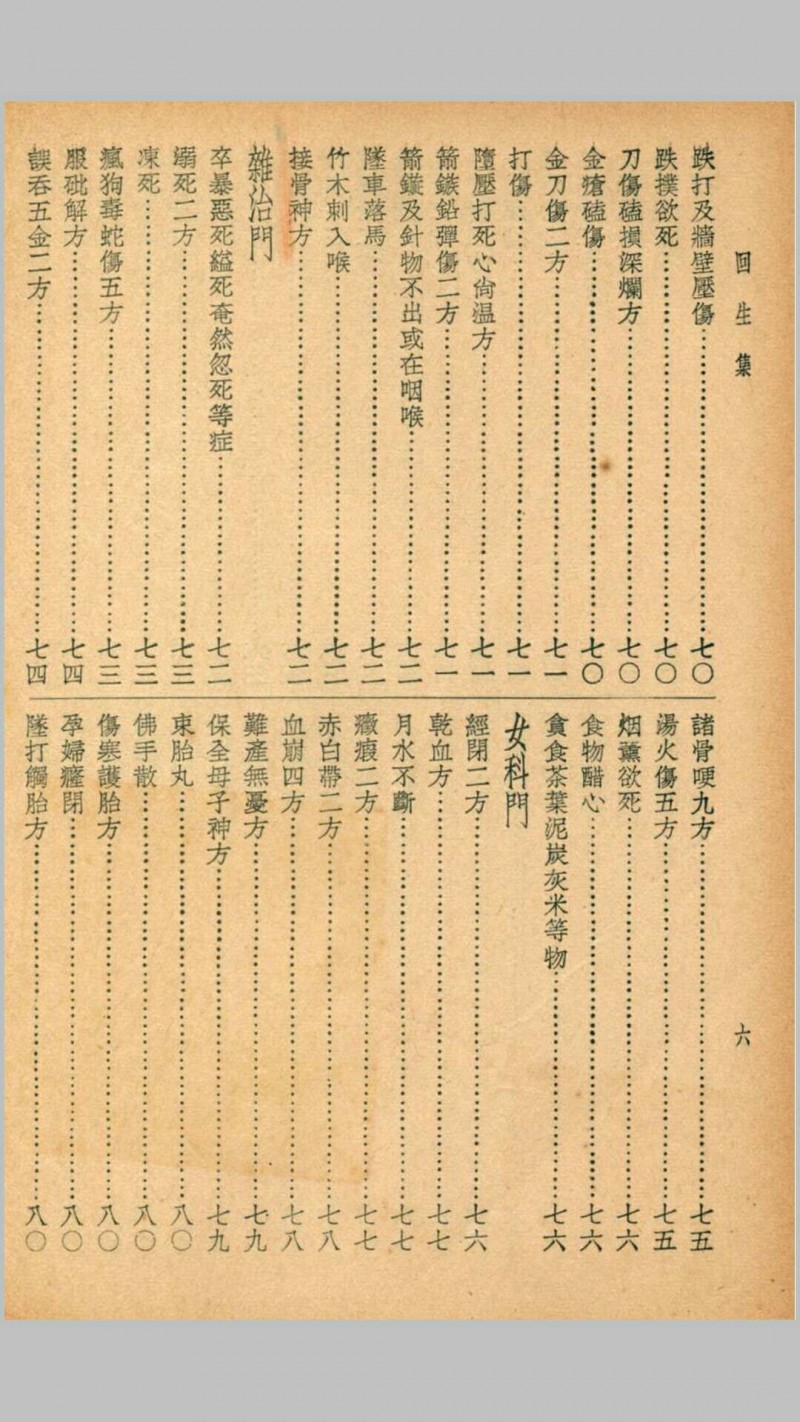 回生集
六
跌打及牆壁壓傷……七〇
跌撲欲死……七〇
刀傷磕損深爛方……七〇
金瘡磕傷……七〇
金刀傷二方……七一
打傷……七一
墮壓打死心尙温方……七一
箭鏃鉛彈傷二方……七一
箭鏇及針物不出或在咽喉……七二
墜車落馬……七二
竹木刺入喉……七二
接骨神方……七二
雜治門
卒暴惡死縊死奄然忽死等症……七二
溺死二方……七三
凍死……七三
瘋狗毒蛇傷五方……七三
服砒解方……七四
誤吞五金二方……七四
諸骨哽九方……七五
湯火傷五方……七五
烟薰欲死……七六
食物醋心……七六
貪食茶葉泥炭灰米等物……七六
女科門
經閉二方……七六
乾血方……七七
月水不斷……七七
癥瘕二方……七七
赤白帶二方……七八
血崩四方……七八
難產無憂方……七九
保全母子神方……七九
束胎丸……八〇
佛手散……八〇
傷寒護胎方……八〇
孕婦癃閉……八〇
墜打觸胎方……八〇